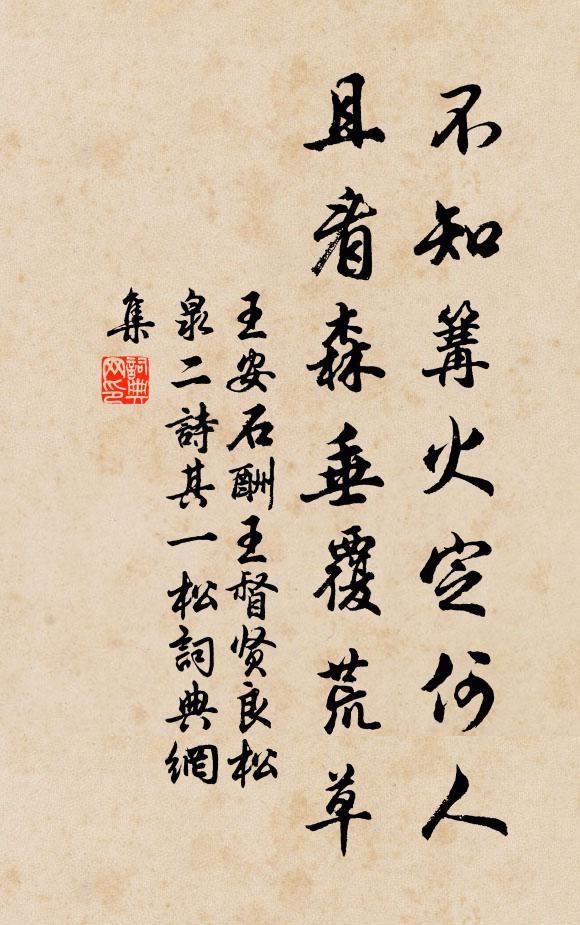 不知篝火定何人
且看森垂覆荒草
王安石酬王督贤良松
泉二詩其一松詞典網
集
詞典網印